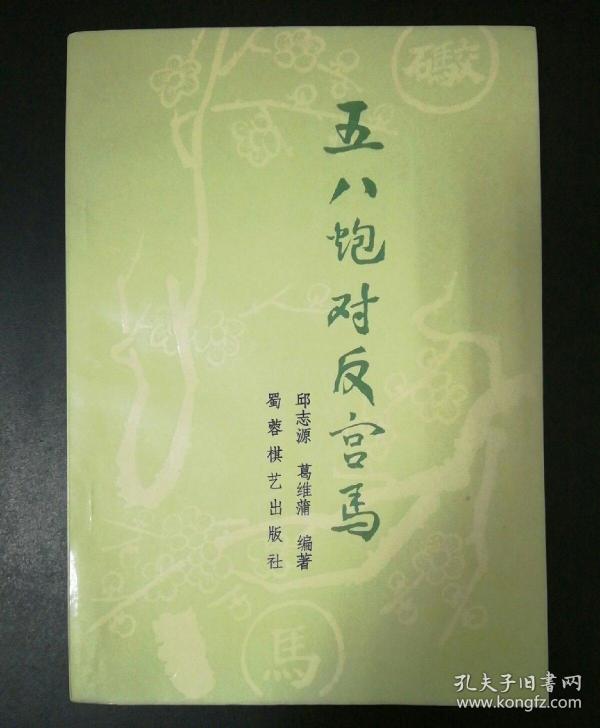 五八炮对反宫马
邱志源 葛维蒲 编著
蜀蓉棋艺出版社
馬
孔夫子旧书网
www.kongfz.com